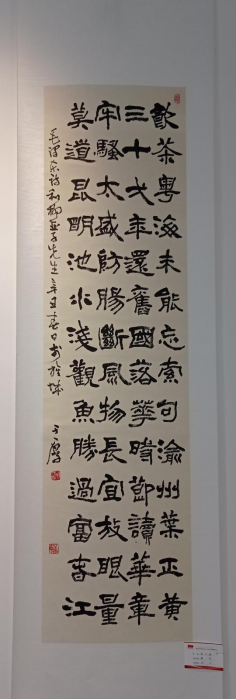 飲茶粵海未能忘索句渝州葉正黃
三十弌年還舊國落華時節讀華章
牢騷太盛防腸斷風物長宜放眼量
莫道昆明池水淺觀魚勝過富春江
毛澤東詩和柳亞子先生辛丑春日